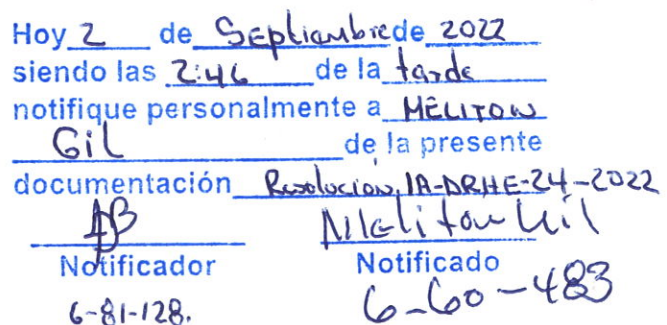 Hoy 2 de Septiembre de 2022
siendo las 2:46 de la tarde
notifique personalmente a MELITON
Gil de la presente
documentación Resolucion IA-DRHE-24-2022
AB Meliton Gil
Notificador Notificado
6-81-128. 6-60-483